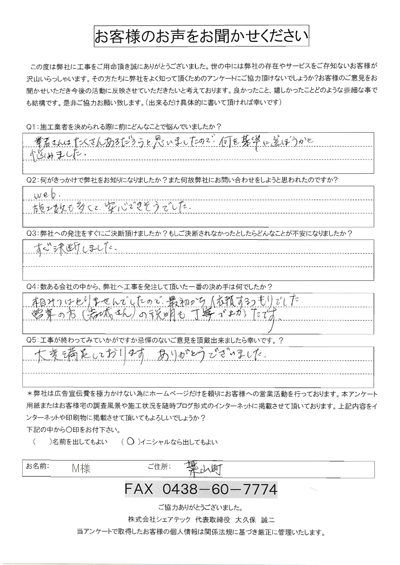 お客様のお声をお聞かせください
この度は弊社に工事をご用命頂き誠にありがとうございました。世の中には弊社の存在やサービスをご存知ないお客様が
沢山いらっしゃいます。その方たちに弊社をよく知って頂くためのアンケートにご協力頂けないでしょうか?お客様のご意見をお
聞かせいただき今後の活動に反映させていただきたいと考えております。良かったこと、嬉しかったことどのような些細な事で
も結構です。是非ご協力お願い致します。(出来るだけ具体的に書いて頂ければ幸いです)
Q1:施工業者を決められる際に前にどんなことで悩んでいましたか?
業者さんはたくさんあるだろうと思いましたので、何を基準に選ぼうかと
悩みました。
Q2:何がきっかけで弊社をお知りになりましたか?また何故弊社にお問い合わせをしようと思われたのですか?
web.
施工数も多くて、安心できそうでした。
Q3:弊社への発注をすぐにご決断頂けましたか?もしご決断されなかったとしたらどんなことが不安になりましたか?
すぐ決断しました。
Q4:数ある会社の中から、弊社へ工事を発注して頂いた一番の決め手は何でしたか?
相みつはとりませんでしたので、最初から依頼するつもりでした
営業の方の説明も丁寧でよかったです。
Q5:工事が終わってみていかがですか忌憚のないご意見を頂戴出来ましたら幸いです。?
大変満足しております ありがとうございました。
*弊社は広告宣伝費を極力かけない為にホームページだけを頼りにお客様への営業活動を行っております。本アンケート
用紙またはお客様宅の調査風景や施工状況を随時ブログ形式のインターネットに掲載させて頂いております。上記内容をイ
ンターネットや印刷物に掲載させて頂いてもよろしいでしょうか?
下記の中から〇印をお付下さい。
( )名前を出してもよい (〇)イニシャルなら出してもよい
お名前: M様 ご住所: 葉山町
FAX 0438-60-7774
ご協力ありがとうございました。
株式会社シェアテック 代表取締役 大久保 誠二
当アンケートで取得したお客様の個人情報は関係法規に基づき厳正に管理いたします。